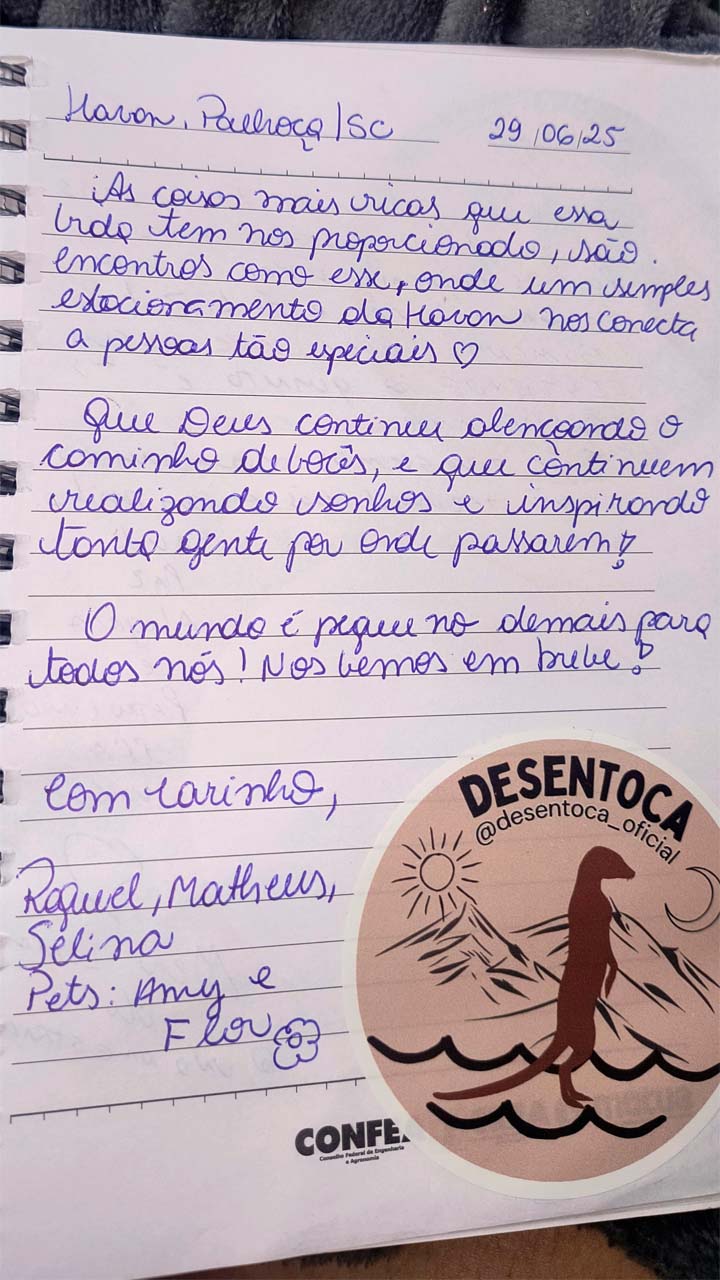 Havan, Palhoça/SC 29/06/25
As coisas mais ricas que essa
vida tem nos proporcionado, são
encontros como esse, onde um simples
estacionamento da Havan nos conecta
a pessoas tão especiais ♡
Que Deus continue abençoando o
caminho de vocês, e que continuem
realizando sonhos e inspirando
tanta gente por onde passarem!
O mundo é pequeno demais para
todos nós! Nos vemos em breve!
Com carinho,
Raquel, Matheus,
Selina
Pets: Amy e
Flor
DESENTOCA
@desentoca_oficial
CONFE
Conselho Federal de Engenharia
e Agronomia